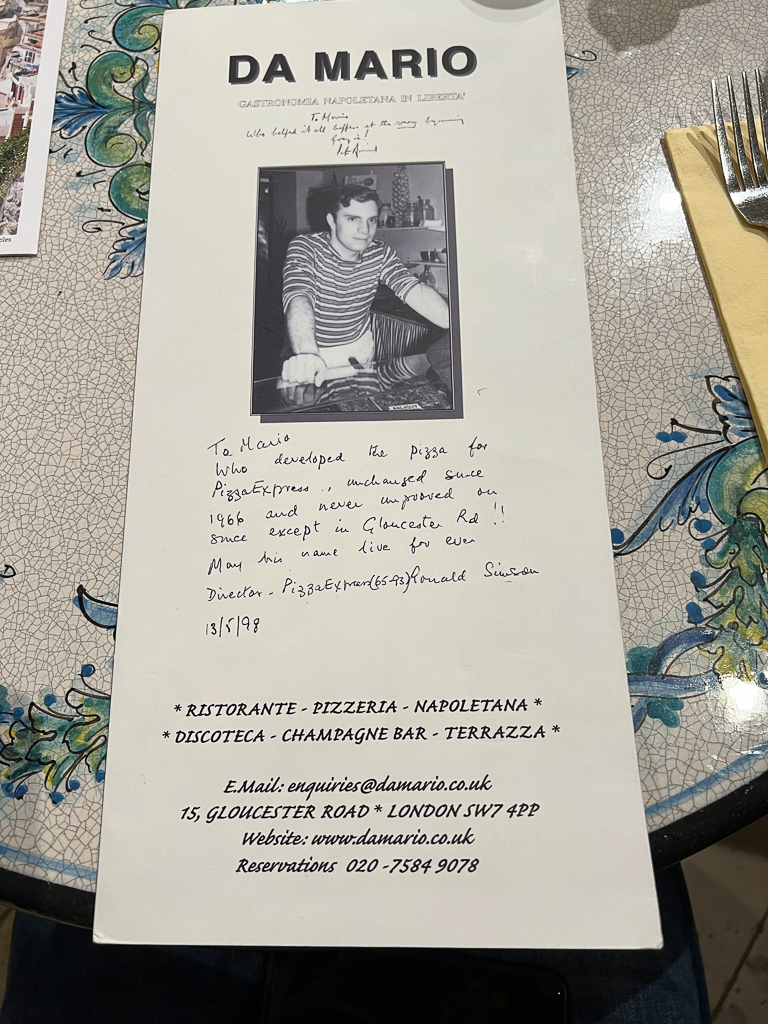 DA MARIO
GASTRONOMIA NAPOLETANA IN LIBERTA'
To Mario
Who helped it all happen at the very beginning
Grazie!
To Mario
Who developed the pizza for
PizzaExpress, unchanged since
1966 and never improved on
since except in Gloucester Rd !!
May his name live for ever
Director - PizzaExpress(65-93) Ronald Simson
13/5/98
* RISTORANTE - PIZZERIA - NAPOLETANA *
* DISCOTECA - CHAMPAGNE BAR - TERRAZZA *
E.Mail: enquiries@damario.co.uk
15, GLOUCESTER ROAD * LONDON SW7 4PP
Website: www.damario.co.uk
Reservations 020 -7584 9078